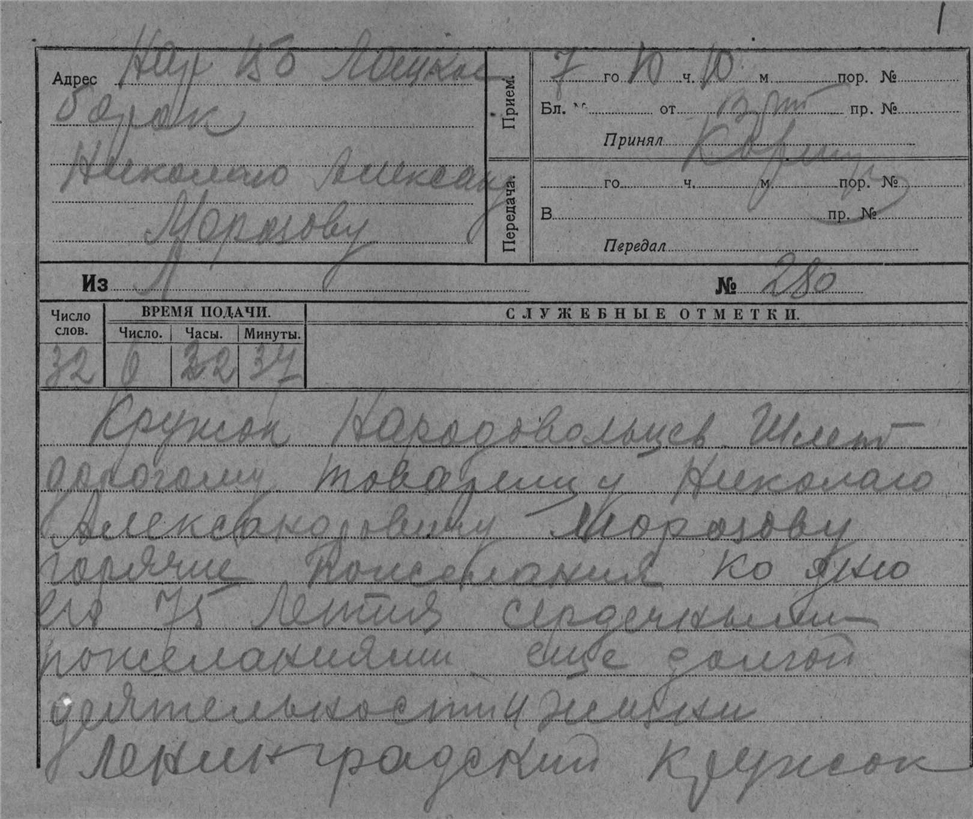 1
Адрес
барак
Николаю Александ
Морозову
Прием.
7 го 10 ч. 10 м пор. №
Бл. № от пр. №
Принял
Передача.
го ч. м пор. №
В пр. №
Передал
Из Л № 280
Число слов.
ВРЕМЯ ПОДАЧИ.
Число. Часы. Минуты.
СЛУЖЕБНЫЕ ОТМЕТКИ.
32 6 22 37
Кружок Народовольцев Шлет
дорогому товарищу Николаю
Александровичу Морозову
горячие Пожелания ко дню
его 75 Летия сердечными
пожеланиями еще долгой
деятельности и жизни
Ленинградский кружок